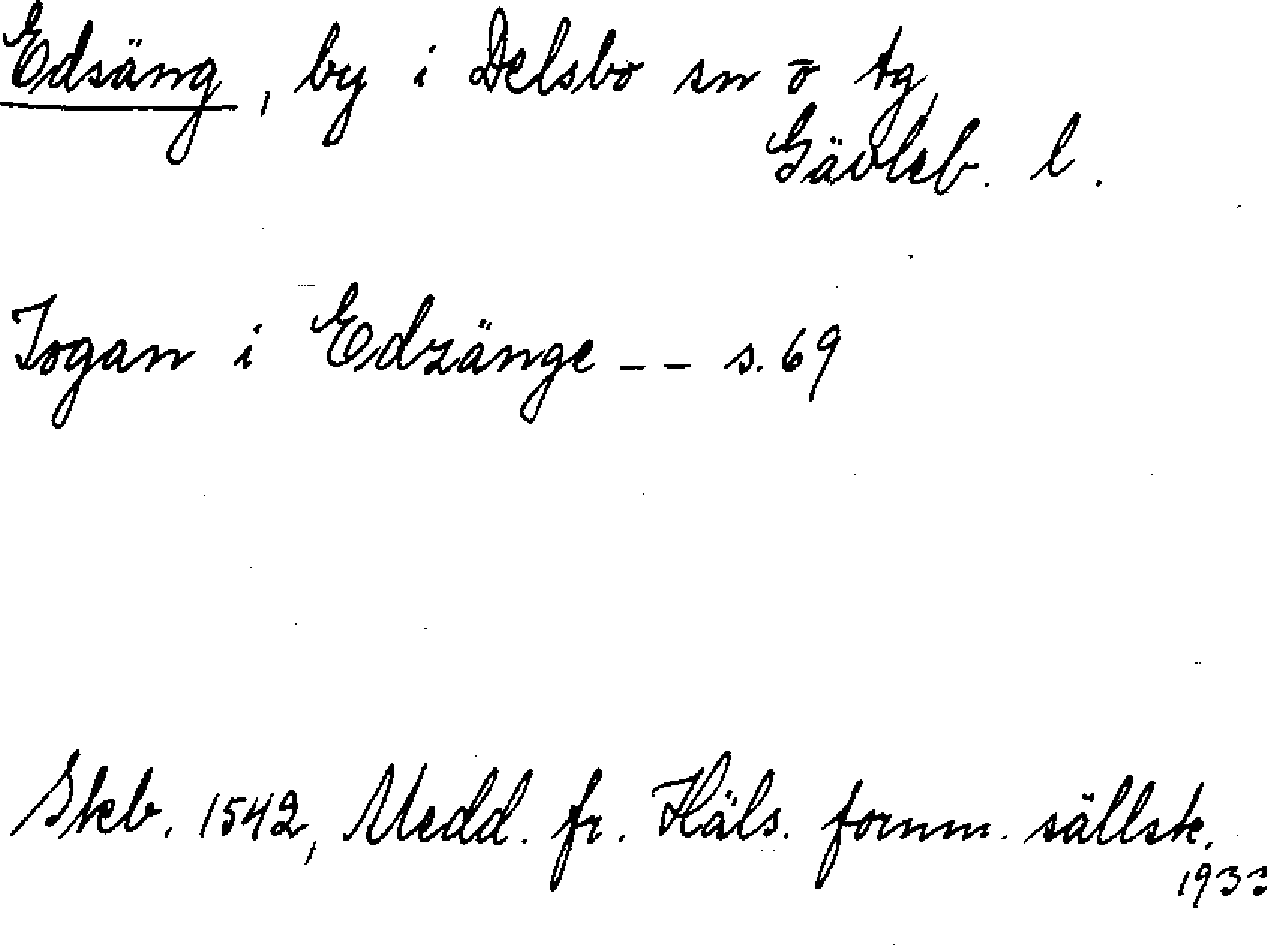 Edsäng, by i Delsbo sn o tg,
Gävleb. l.
Jogan i Edzänge -- s. 69
Skb. 1542, Medd. fr. Häls. fornm. sällsk.
1933